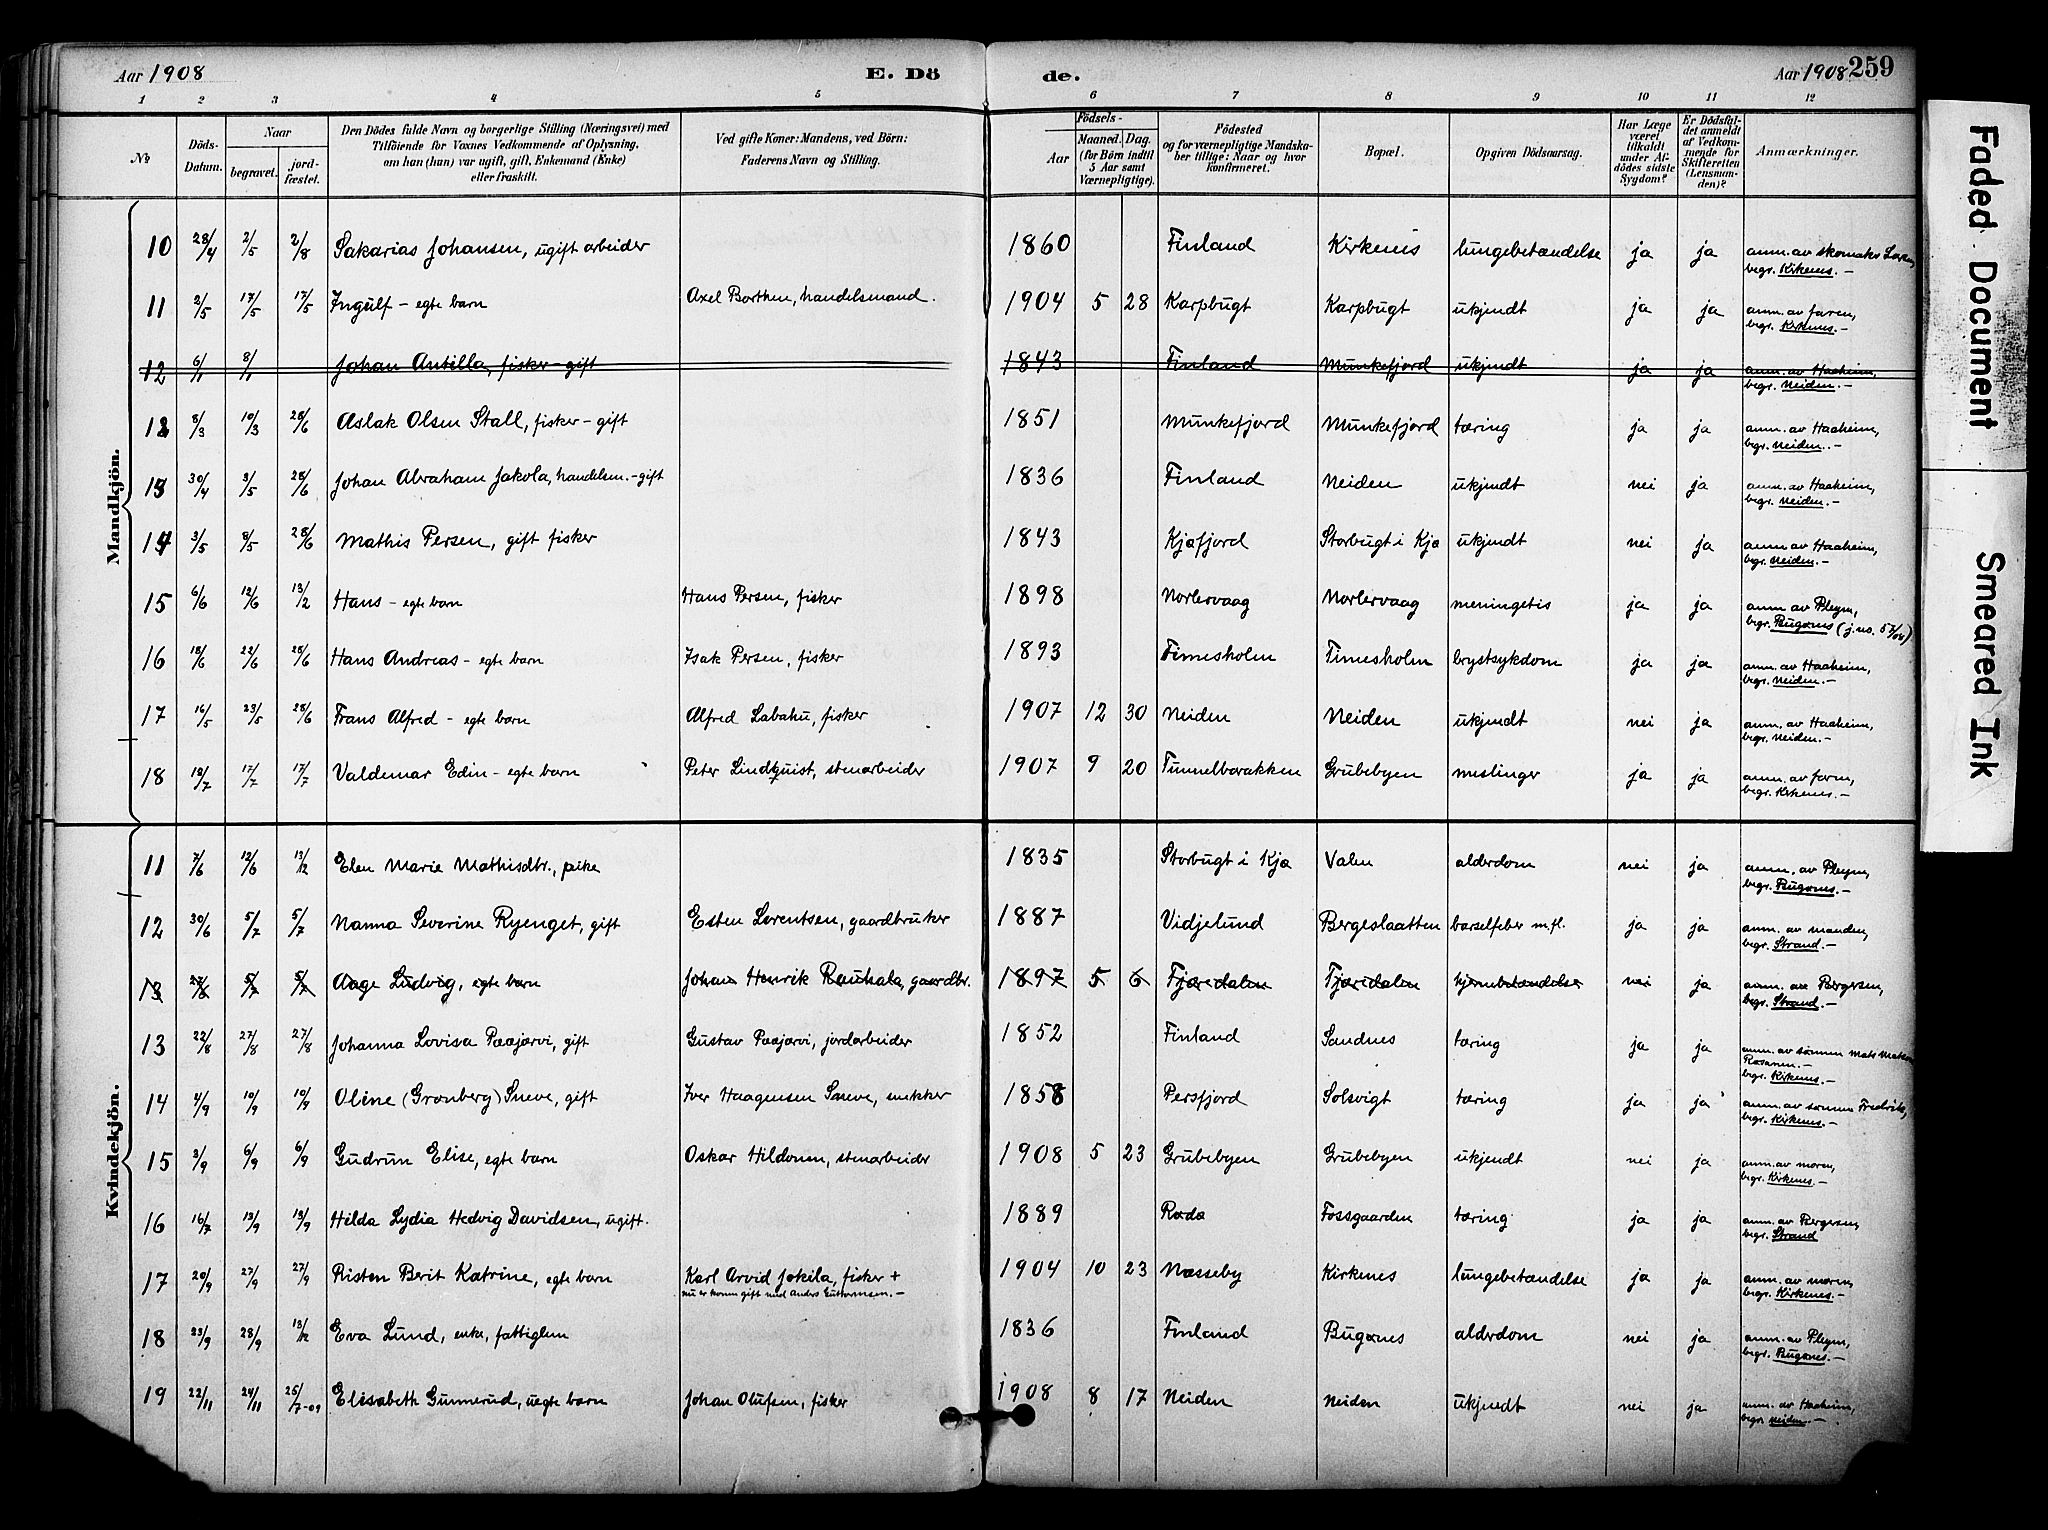 Aar 1908 E. Dö de. Aar 1908 259
1 2 3 4 5 6 7 8 9 10 11 12
No
Döds-Datum.
Naar
begravet.
jordfæstet.
Den Dödes fulde Navn og borgerlige Stilling (Næringsvei) med
Tilföiende for Voxnes Vedkommende af Oplysning,
om han (hun) var ugift, gift, Enkemand (Enke)
eller fraskilt.
Ved gifte Koner: Mandens, ved Börn:
Faderens Navn og Stilling.
Födsels-
Aar
Maaned. Dag.
(for Börn indtil
5 Aar samt
Værnepligtige).
Födested
og for værnepligtige Mandskaber tillige: Naar og hvor
konfirmeret.
Bopæl.
Opgiven Dödsaarsag.
Har Læge
været
tilkaldt
under Afdödes sidste
Sygdom?
Er Dödsfaldet anmeldt
af Vedkommende for
Skifteretten
(Lensmanden)?
Anmærkninger.
Mandkjön.
10 28/4 2/5 2/8 Sakarias Johansen, ugift arbeider 1860 Finland Kirkenes lungebetændelse ja ja anm. av skomaker
begr. Kirkenes.-
11 2/5 17/5 17/5 Ingulf - egte barn Axel Borthen, handelsmand. 1904 5 28 Karpbugt Karpbugt ukjendt ja ja anm. av faren,
begr. Kirkenes.-
12 6/1 8/1 Johan Antilla, fisker - gift 1843 Finland Munkefjord ukjendt ja ja anm. av Haaheim,
begr. Neiden.-
12 8/3 10/3 28/6 Aslak Olsen Stall, fisker - gift 1851 Munkefjord Munkefjord tæring ja ja anm. av Haaheim,
begr. Neiden.-
13 30/4 3/5 28/6 Johan Abraham Jakola, handelsm. - gift 1836 Finland Neiden ukjendt nei ja anm. av Haaheim,
begr. Neiden.-
14 3/5 8/5 28/6 Mathis Persen, gift fisker 1843 Kjøfjord Storbugt i Kjø ukjendt nei ja anm av Haaheim,
begr. Neiden.-
15 6/6 12/6 13/2 Hans - egte barn Hans Persen, fisker 1898 Norlervaag Norlervaag meningetis ja ja anm av Pleym,
begr. Bugønes (j.no.
16 18/6 22/6 28/6 Hans Andreas - egte barn Isak Persen, fisker 1893 Fimesholm Fimesholm brystsykdom ja ja anm. av Haaheim,
begr. Neiden.-
17 16/5 23/5 28/6 Frans Alfred - egte barn Alfred Labahu, fisker 1907 12 30 Neiden Neiden ukjendt nei ja anm. av Haaheim,
begr. Neiden.-
18 12/7 17/7 17/7 Valdemar Edin - egte barn Peter Lindquist, stenarbeider 1907 9 20 Tunnelbarakken Grubebyen meslinger ja ja anm. av faren,
begr. Kirkenes.-
Kvindekjön.
11 7/6 12/6 13/12 Elen Marie Mathisdtr., pike 1835 Storbugt i Kjø Valen alderdom nei ja anm. av Pleym,
begr. Bugønes.-
12 30/6 5/7 5/7 Nanna Severine Ryenget, gift Esten Lorentsen, gaardbruker 1887 Vidjelund Bergeslaatten barselfeber m.fl. ja ja anm. av manden,
begr. Strand.-
13 28/6 5/7 5/7 Aage Ludvig, egte barn Johan Henrik Rauhala, gaardbr. 1897 5 6 Fjæredalen Fjæredalen hjernebetændelse nei ja anm. av Bergersen,
begr. Strand.-
13 22/8 27/8 27/8 Johanna Lovisa Paajærvi, gift Gustav Paajærvi, jordarbeider 1852 Finland Sandnes tæring ja ja anm. av sønnen Mats
begr. Kirkenes.-
14 4/9 10/9 10/9 Oline (Grønberg) Sneve, gift Iver Haagensen Sneve, snekker 1858 Persfjord Solsvigt tæring ja ja anm. av sønnen Fredrik,
begr. Kirkenes.-
15 3/9 6/9 6/9 Gudrun Elise, egte barn Oskar Hildonen, stenarbeider 1908 5 23 Grubebyen Grubebyen ukjendt nei ja anm. av moren,
begr. Kirkenes.-
16 16/7 13/9 13/9 Hilda Lydia Hedvig Davidsen, ugift. 1889 Rødø Fossgaarden tæring ja ja anm. av Bergersen,
begr. Strand
17 20/9 27/9 27/9 Risten Berit Katrine, egte barn Karl Arvid Jokila, fisker +
nu er konen gift med Anders Guttormsen.-
1904 10 23 Næsseby Kirkenes lungebetændelse ja ja anm. av moren,
begr. Kirkenes.-
18 23/9 28/9 13/12 Eva Lund, enke, fattiglem 1836 Finland Bugønes alderdom nei ja anm. av Pleym,
begr. Bugønes.-
19 22/11 24/11 25/7-09 Elisabeth Gunnerud, uegte barn Johan Olufsen, fisker 1908 8 17 Neiden Neiden ukjendt nei ja anm. av Haaheim,
begr. Neiden.-
Faded Document
Smeared Ink